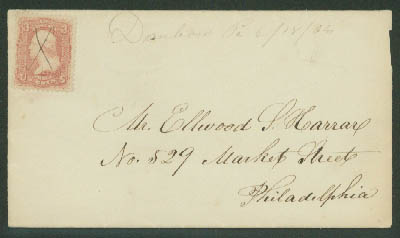 Pa 6/18/64
Mr. Ellwood S. Harrar
No. 529 Market Street
Philadelphia